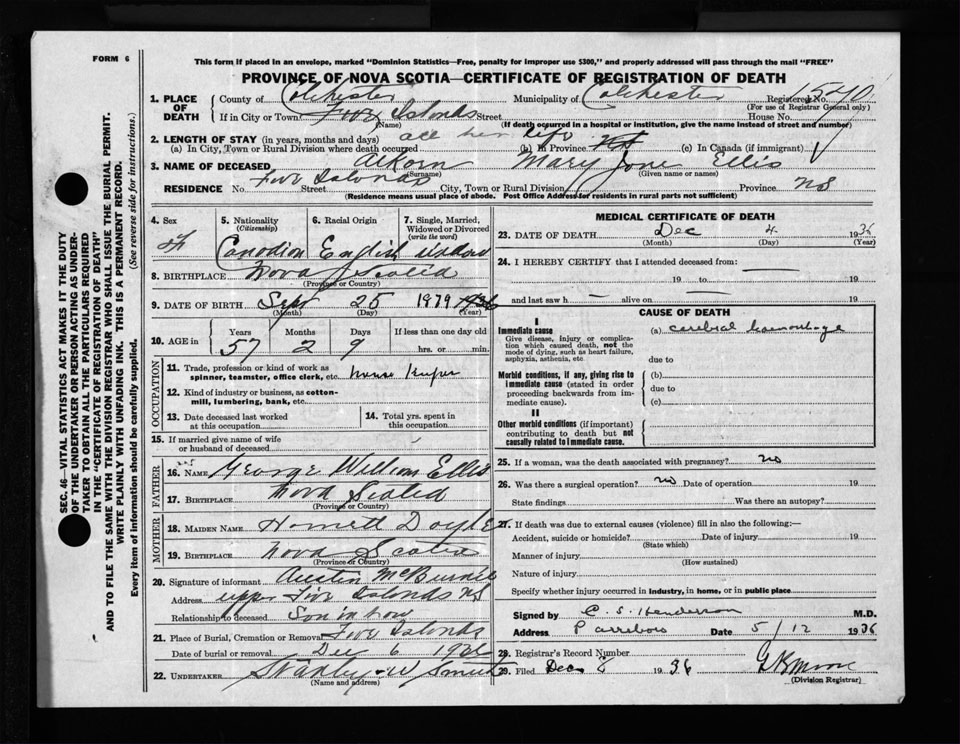 FORM 6
This form if placed in an envelope, marked "Dominion Statistics—Free, penalty for improper use $300," and properly addressed will pass through the mail "FREE"
PROVINCE OF NOVA SCOTIA—CERTIFICATE OF REGISTRATION OF DEATH
1. PLACE OF DEATH County of Colchester Municipality of Colchester Registered No. 1540
(For use of Registrar General only)
If in City or Town Five Islands Street House No.
(Name) (If death occurred in a hospital or institution, give the name instead of street and number)
2. LENGTH OF STAY (in years, months and days) all her life
(a) In City, Town or Rural Division where death occurred (b) In Province (c) In Canada (if immigrant)
3. NAME OF DECEASED Alkorn Mary Jane Ellis
(Surname) (Given name or names)
RESIDENCE No. Five Islands Street City, Town or Rural Division Province NS
(Residence means usual place of abode. Post Office Address for residents in rural parts not sufficient)
4. Sex F
5. Nationality (Citizenship) Canadian
6. Racial Origin English
7. Single, Married, Widowed or Divorced (write the word) widow
8. BIRTHPLACE Nova Scotia
(Province or Country)
9. DATE OF BIRTH Sept 25 1879
(Month) (Day) (Year)
10. AGE in Years 57 Months 2 Days 9 If less than one day old hrs. or min.
OCCUPATION
11. Trade, profession or kind of work as spinner, teamster, office clerk, etc. house keeper
12. Kind of industry or business, as cotton-mill, lumbering, bank, etc.
13. Date deceased last worked at this occupation
14. Total yrs. spent in this occupation
15. If married give name of wife or husband of deceased
FATHER
16. NAME George William Ellis
17. BIRTHPLACE Nova Scotia
(Province or Country)
MOTHER
18. MAIDEN NAME Doyle
19. BIRTHPLACE Nova Scotia
(Province or Country)
20. Signature of informant Austin McBurnie
Address upper Five Islands NS
Relationship to deceased Son in law
21. Place of Burial, Cremation or Removal Five Islands
Date of burial or removal Dec 6 1936
22. UNDERTAKER Stanley W Smith
(Name and address)
MEDICAL CERTIFICATE OF DEATH
23. DATE OF DEATH Dec 4 1936
(Month) (Day) (Year)
24. I HEREBY CERTIFY that I attended deceased from:
19 to 19
and last saw h alive on 19
CAUSE OF DEATH
I
Immediate cause (a) cerebral haemorrhage
Give disease, injury or complication which caused death, not the mode of dying, such as heart failure, asphyxia, asthenia, etc.
due to
Morbid conditions, if any, giving rise to immediate cause (stated in order proceeding backwards from immediate cause).
(b)
due to
(c)
II
Other morbid conditions (if important) contributing to death but not causally related to immediate cause.
25. If a woman, was the death associated with pregnancy? no
26. Was there a surgical operation? no Date of operation 19
State findings Was there an autopsy?
27. If death was due to external causes (violence) fill in also the following:—
Accident, suicide or homicide? Date of injury 19
(State which)
Manner of injury
(How sustained)
Nature of injury
Specify whether injury occurred in industry, in home, or in public place
Signed by C. S. Henderson M.D.
Address Parrsboro Date 5/12 1936
28. Registrar's Record Number
29. Filed Dec 1936
(Division Registrar)
SEC. 46—VITAL STATISTICS ACT MAKES IT THE DUTY
OF THE UNDERTAKER OR PERSON ACTING AS UNDER-
TAKER TO OBTAIN ALL THE PARTICULARS REQUIRED
IN THE "CERTIFICATE OF REGISTRATION OF DEATH"
AND TO FILE THE SAME WITH THE DIVISION REGISTRAR WHO SHALL ISSUE THE BURIAL PERMIT.
WRITE PLAINLY WITH UNFADING INK. THIS IS A PERMANENT RECORD.
Every item of information should be carefully supplied. (See reverse side for instructions.)